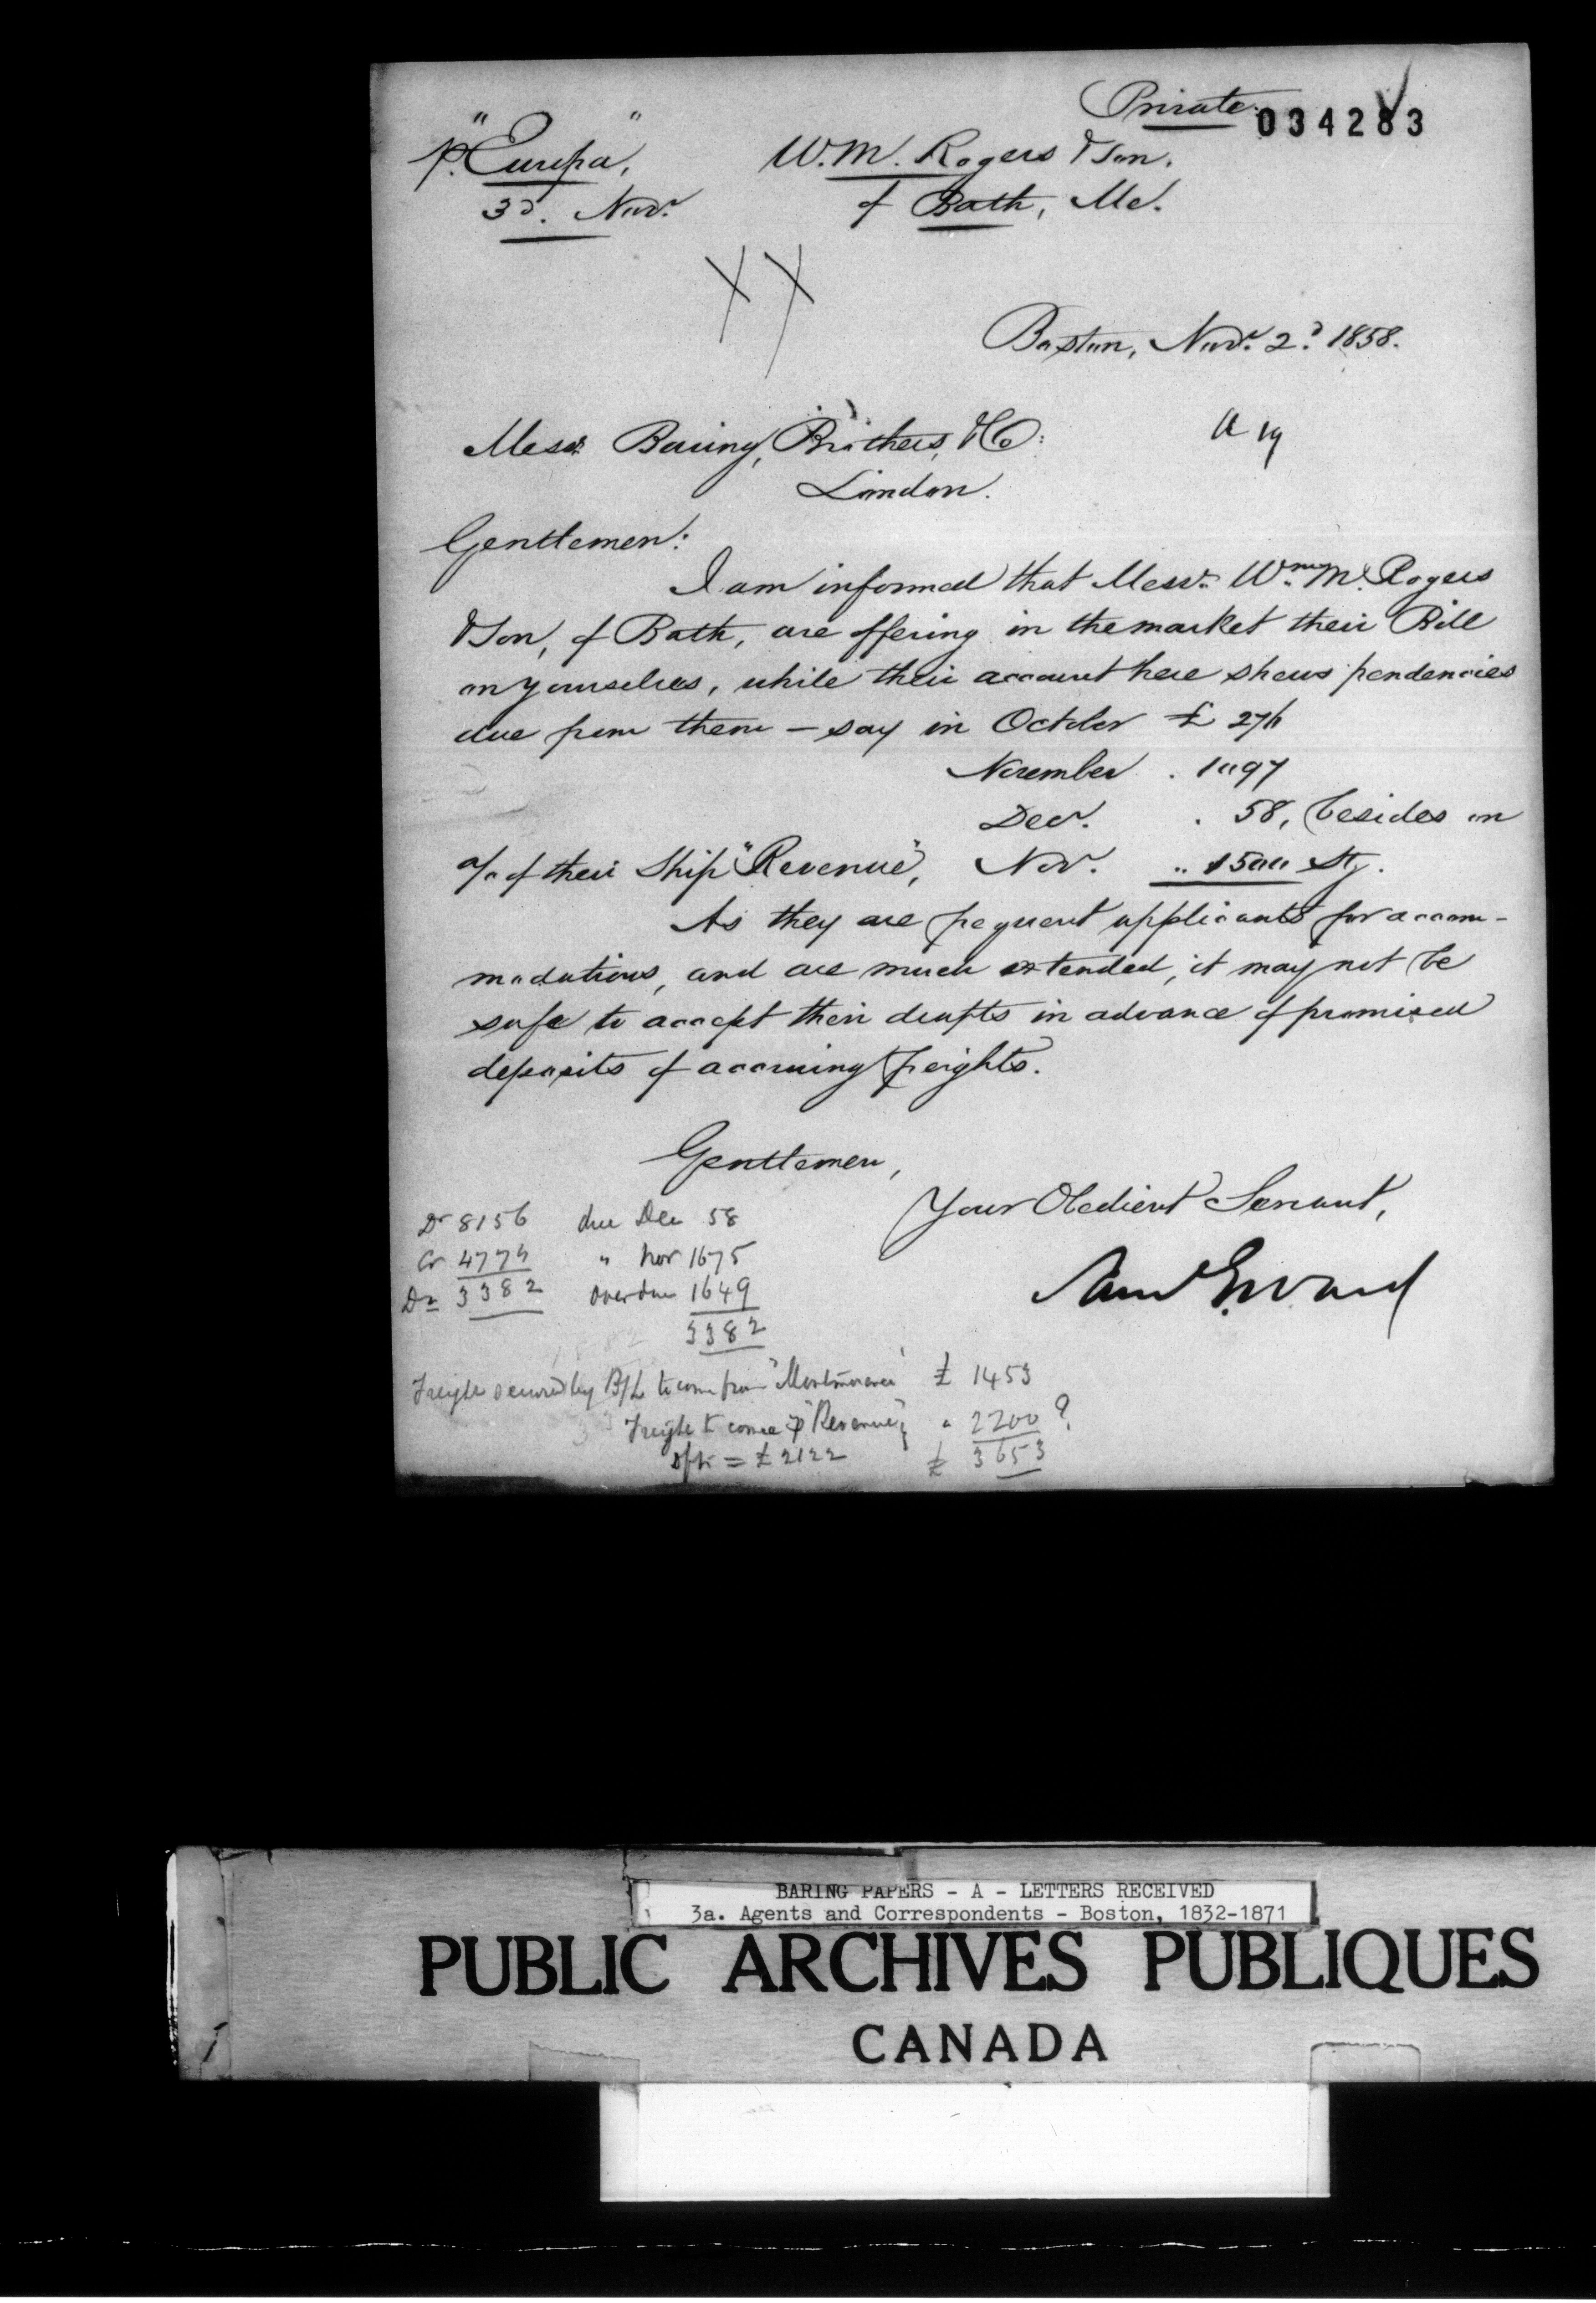 Private.
034283
p. "Europa",
W. M. Rogers & Son.
3d. Novr.
of Bath, Me.
Boston, Novr. 2d. 1858.
Messrs. Baring, Brothers, & Co:
London.
Gentlemen:
I am informed that Messrs. Wm. M. Rogers
& Son, of Bath, are offering in the market their Bill
on yourselves, while their account here shews pendencies
due from them — say in October £
November . 1097
Decr. . 58, besides on
a/c of their Ship "Revenue", Nov. " 1500 Stg.
As they are frequent applicants for accom-
modations, and are much extended, it may not be
safe to accept their drafts in advance of promised
deposits of accruing freights.
Gentlemen,
Your Obedient Servant,
Saml G. Ward
Dr 8156 due Dec 58
Cr 4774 " Nov 1675
Dr 3382 overdue 1649
3382
Freight secured by B/L to come from "Montmorenci" £ 1453
Freight to come p "Revenue" " 2200 ?
= £ 2122 £ 3653
BARING PAPERS - A - LETTERS RECEIVED
3a. Agents and Correspondents - Boston, 1832-1871
PUBLIC ARCHIVES PUBLIQUES
CANADA